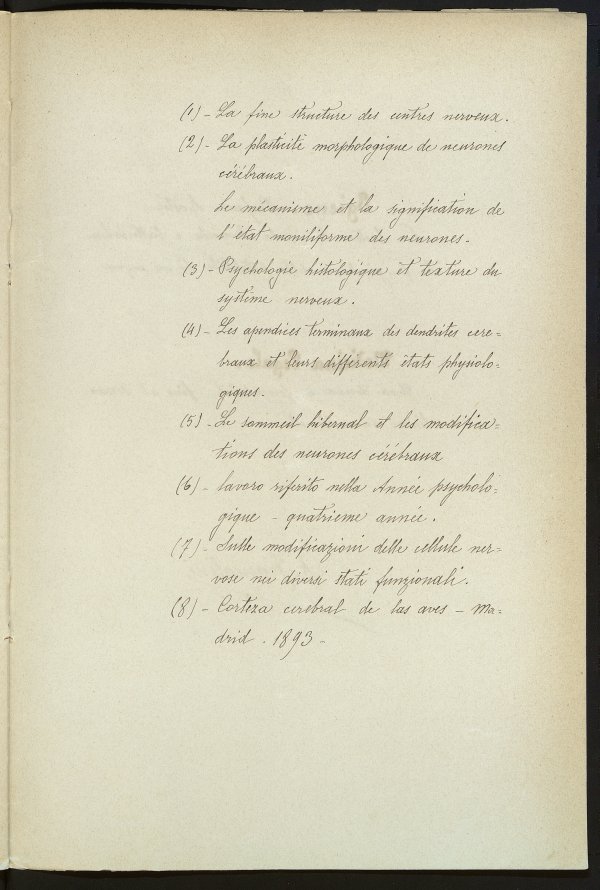 (1) - La fine structure des centres nerveux.
(2) - La plasticité morphologique de neurones
cérébraux.
Le mécanisme et la signification de
l'état moniliforme des neurones.
(3) - Psychologie histologique et texture du
système nerveux.
(4) - Les apendices terminaux des dendrites cere-
braux et leurs différents états physiolo-
giques.
(5) - Le sommeil hibernal et les modifica-
tions des neurones cérébraux
(6) - lavoro riferito nella Année psycholo-
gique - quatrieme année.
(7) - Sulle modificazioni delle cellule ner-
vose nei diversi stati funzionali.
(8) - Corteza cerebral de las aves - Ma-
drid . 1893 -